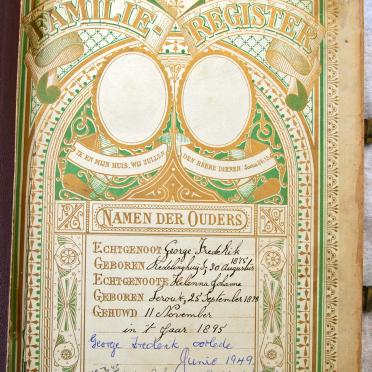 FAMILIE-REGISTER
IK EN MIJN HUIS, WIJ ZULLEN DEN HEERE DIENEN
NAMEN DER OUDERS
ECHTGENOOT George Frederik
GEBOREN Redelinghuijs, 30 Augustus 1875
ECHTGENOOTE Helenna Johanna
GEBOREN 25 September 1878
GEHUWD 11 November
in 't Jaar 1895
George Frederik oorlede
Junie 1949